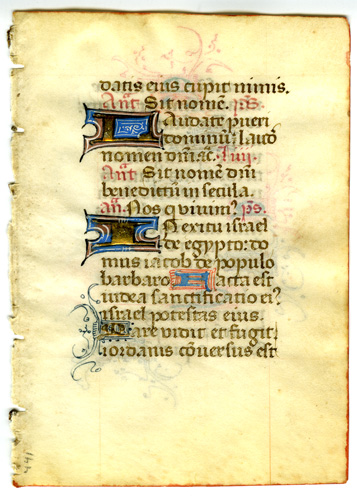 datis eius cupit nimis.
Añt. Sit nomē. ps.
Laudate pueri
dominū: laudō
nomen dm̄i ꝛc. Añ.
Añt Sit nomē dn̄i
benedictū in secula.
añ. Nos q̄ vivim⁹. ps.
In exitu israel
de egypto: do
mus iacob de populo
barbaro. Facta est
iudea sanctificatio ei⁹
israel potestas eius.
Mare vidit et fugit:
iordanis cōversus est
441